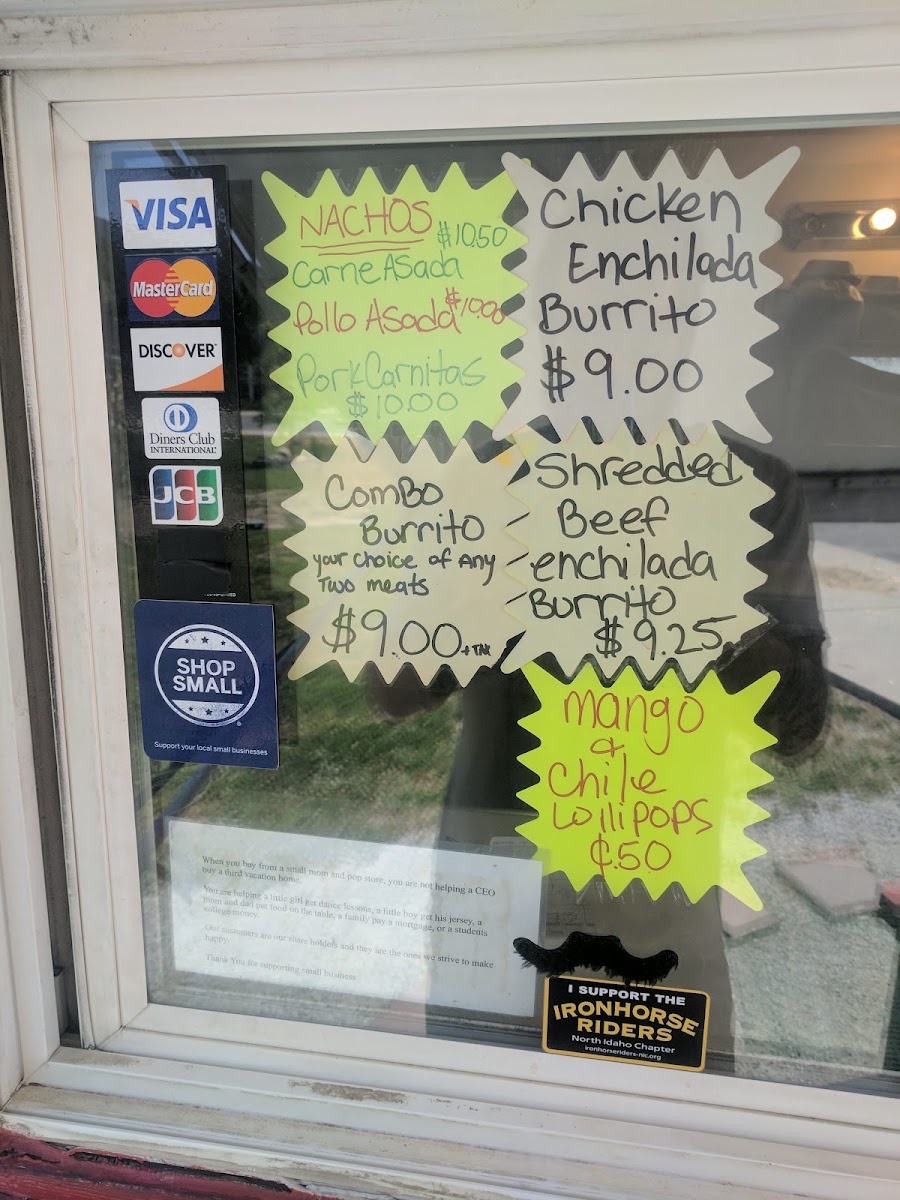 VISA
MasterCard
DISCOVER
Diners Club
INTERNATIONAL
JCB
SHOP
SMALL
Support your local small businesses
NACHOS
$10.50
Carne Asada
Pollo Asada $10.00
Pork Carnitas
$10.00
Chicken
Enchilada
Burrito
$9.00
ComBo
Burrito
your choice of Any
Two meats
$9.00 + TAX
Shredded
Beef
enchilada
Burrito
$9.25
mango
&
Chile
Lollipops
¢.50
When you buy from a small mom and pop store, you are not helping a CEO
buy a third vacation home.
You are helping a little girl get dance lessons, a little boy get his jersey, a
mom and dad put food on the table, a family pay a mortgage, or a students
college money.
Our customers are our share holders and they are the ones we strive to make
happy.
Thank You for supporting small business
I SUPPORT THE
IRONHORSE
RIDERS
North Idaho Chapter
ironhorseriders-nic.org